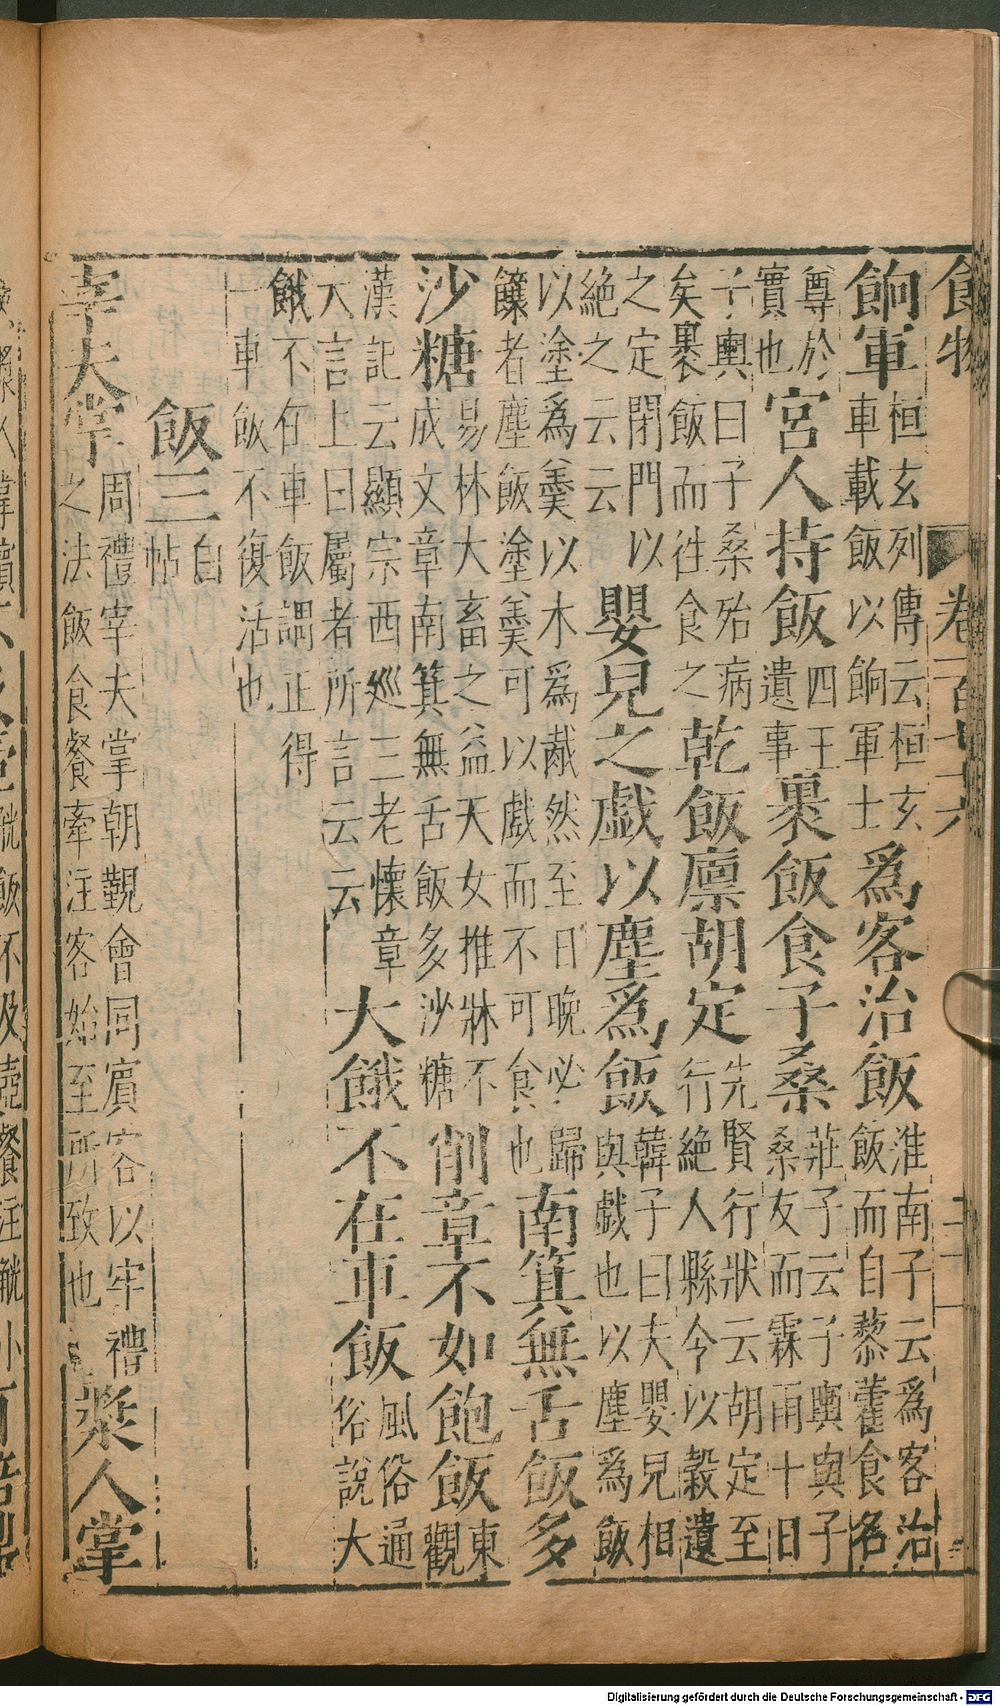 食物 卷一百七十六 二十一
餉軍桓玄列傳云桓玄車載飯以餉軍士爲客治飯淮南子云爲客治飯而自藜藿食名
尊於實也宮人持飯四王遺事裹飯食子桑莊子云子輿與子桑友而霖雨十日
子輿曰子桑殆病矣裹飯而往食之乾飯廪胡定先賢行狀云胡定至行絶人縣令以穀遺
之定閉門以絶之云云嬰兒之戯以塵爲飯韓子曰夫嬰兒相與戯也以塵爲飯
以塗爲羹以木爲胾然至日晚必歸饟者塵飯塗羹可以戲而不可食也南箕無舌飯多
沙糖易林大畜之益天女推牀不成文章南箕無舌飯多沙糖削章不如飽飯東觀
漢記云顯宗西廵三老懷章入言上曰屬者所言云云大餓不在車飯風俗通俗說大
餓不在車飯謂正得一車飯不復活也
飯三自帖
宰夫掌周禮宰夫掌朝覲會同賓客以牢禮之法飯食餐牽注客始至所致也槳人掌
觥飯不及壺餐注觥
Digitalisierung gefördert durch die Deutsche Forschungsgemeinschaft - DFG